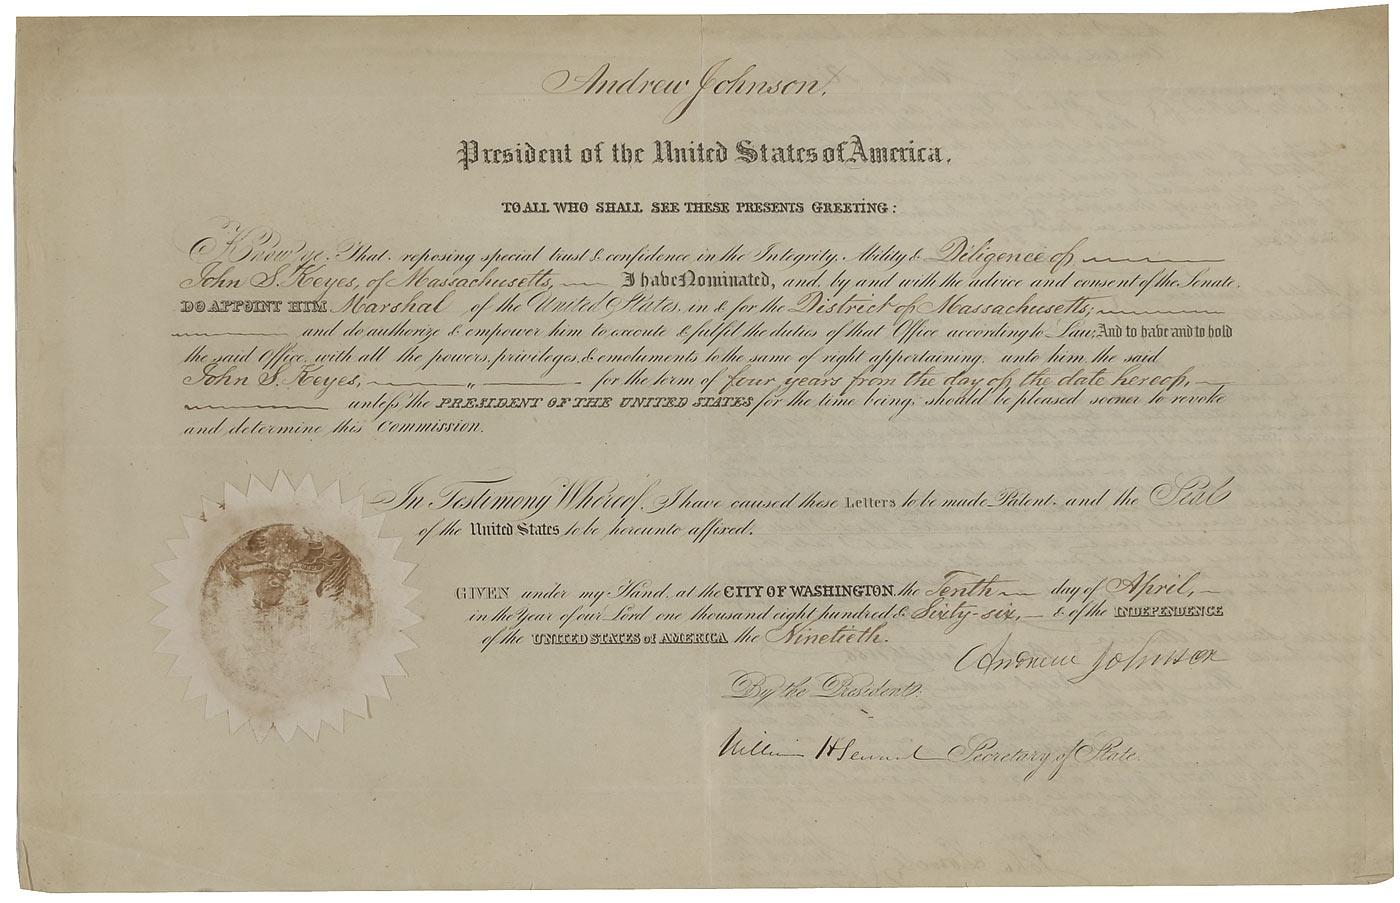 Andrew Johnson,
President of the United States of America.
TO ALL WHO SHALL SEE THESE PRESENTS GREETING:
Know ye, That, reposing special trust & confidence in the Integrity, Ability & Diligence of
John S. Keyes, of Massachusetts, I have Nominated, and, by and with the advice and consent of the Senate,
DO APPOINT HIM Marshal of the United States, in & for the District of Massachusetts;
and do authorize & empower him to execute & fulfil the duties of that Office according to Law; And to have and to hold
the said Office, with all the powers, privileges, & emoluments to the same of right appertaining, unto him the said
John S. Keyes, for the term of four years from the day of the date hereof,
unless the PRESIDENT OF THE UNITED STATES for the time being, should be pleased sooner to revoke
and determine this Commission.
In Testimony Whereof, I have caused these Letters to be made Patent, and the Seal
of the United States to be hereunto affixed.
GIVEN under my Hand, at the CITY OF WASHINGTON, the Tenth day of April,
in the Year of our Lord one thousand eight hundred & Sixty-six, & of the INDEPENDENCE
of the UNITED STATES of AMERICA the Ninetieth.
Andrew Johnson
By the President:
William H Seward Secretary of State.